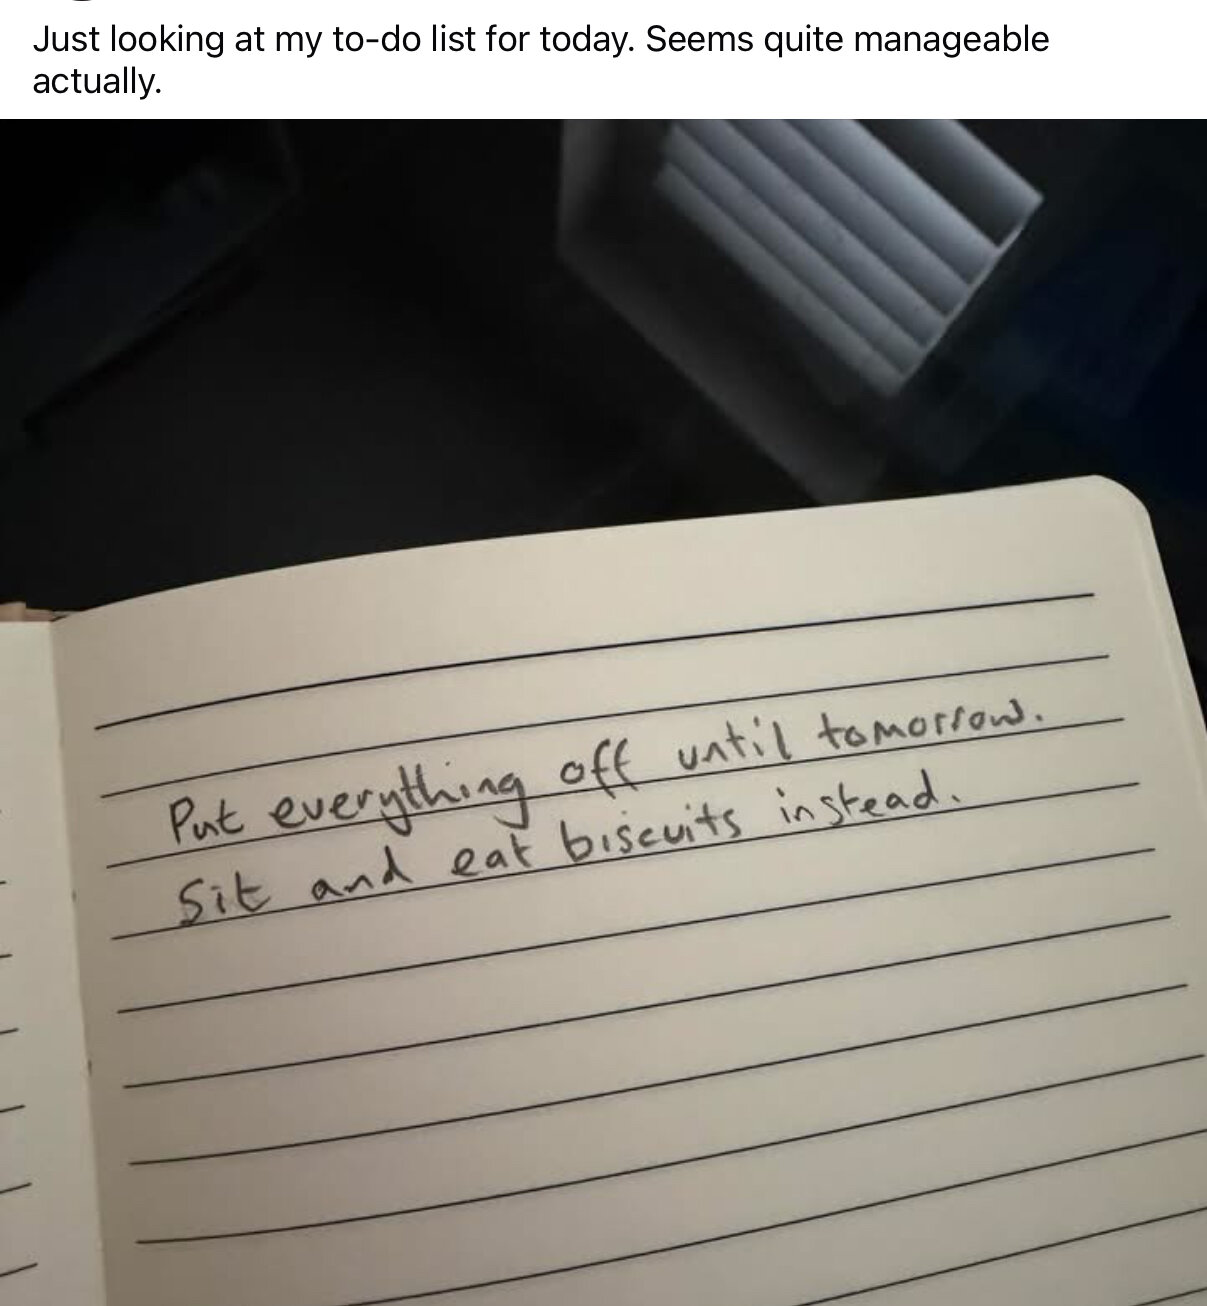 Just looking at my to-do list for today. Seems quite manageable
actually.
Put everything off until tomorrow.
Sit and eat biscuits instead.